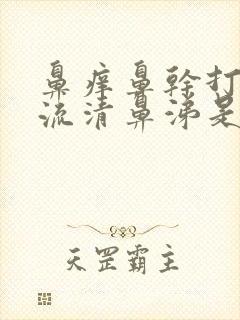 鼻痒鼻幹打
流清鼻涕是
天罡霸主